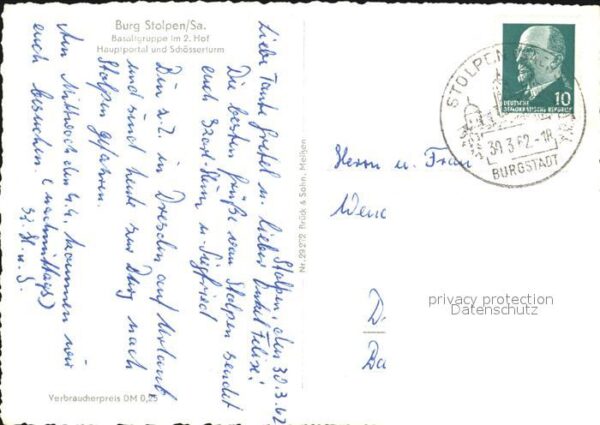 Burg Stolpen/Sa.
Basaltgruppe im 2. Hof
Hauptportal und Schösserturm
Stolpen, den 30.3.62
Liebe Tante Gretel u. lieber Onkel Felix!
Die besten Grüße von Stolpen sendet
euch Heinz u. Siegfried
Bin z.Z. in Dresden auf Urlaub
und sind heute zur Burg nach
Stolpen gefahren.
Am Mittwoch den 4.4. kommen wir
euch besuchen. (nachmittags)
H. u. S.
Verbraucherpreis DM 0,25
Nr. 29272 Brück & Sohn, Meißen
DEUTSCHE
DEMOKRATISCHE REPUBLIK
10
STOLPEN
30.3.62-18
BURGSTADT
Herrn u. Frau
Wenc
D.
Da
privacy protection
Datenschutz